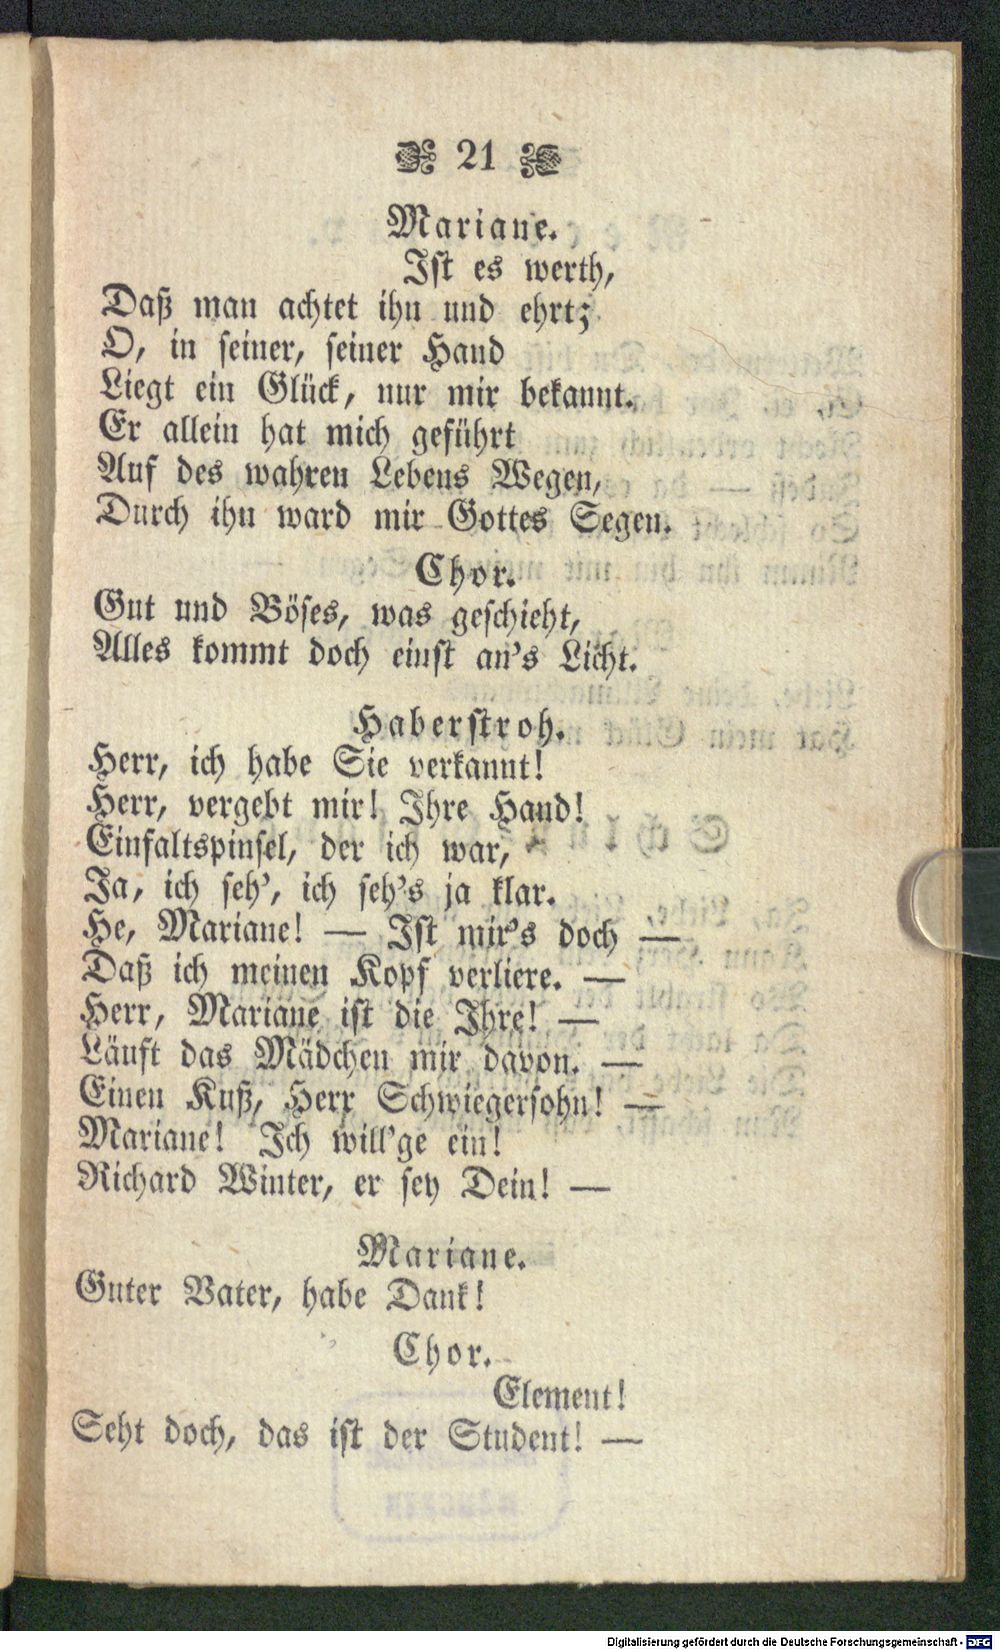 21
Mariane.
Ist es werth,
Daß man achtet ihn und ehrt;
O, in seiner, seiner Hand
Liegt ein Glück, nur mir bekannt.
Er allein hat mich geführt
Auf des wahren Lebens Wegen,
Durch ihn ward mir Gottes Segen.
Chor.
Gut und Böses, was geschieht,
Alles kommt doch einst an's Licht.
Haberstroh.
Herr, ich habe Sie verkannt!
Herr, vergebt mir! Ihre Hand!
Einfaltspinsel, der ich war,
Ja, ich seh', ich seh's ja klar.
He, Mariane! — Ist mir's doch —
Daß ich meinen Kopf verliere. —
Herr, Mariane ist die Ihre! —
Läuft das Mädchen mir davon. —
Einen Kuß, Herr Schwiegersohn! —
Mariane! Ich will'ge ein!
Richard Winter, er sey Dein! —
Mariane.
Guter Vater, habe Dank!
Chor.
Element!
Seht doch, das ist der Student! —
Digitalisierung gefördert durch die Deutsche Forschungsgemeinschaft - DFG